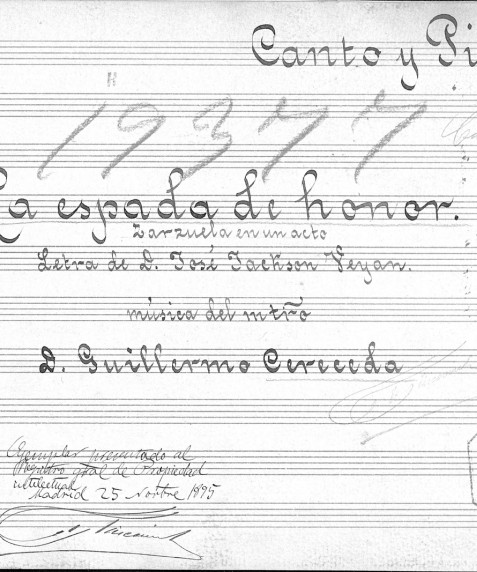 Canto y Pi
19377
La espada de honor.
Zarzuela en un acto
Letra de D. José Jackson Veyan.
música del mtrõ
D. Guillermo Cereceda
Ejemplar presentado al
Registro gral de Propiedad
intelectual
Madrid 25 Novbre 1895